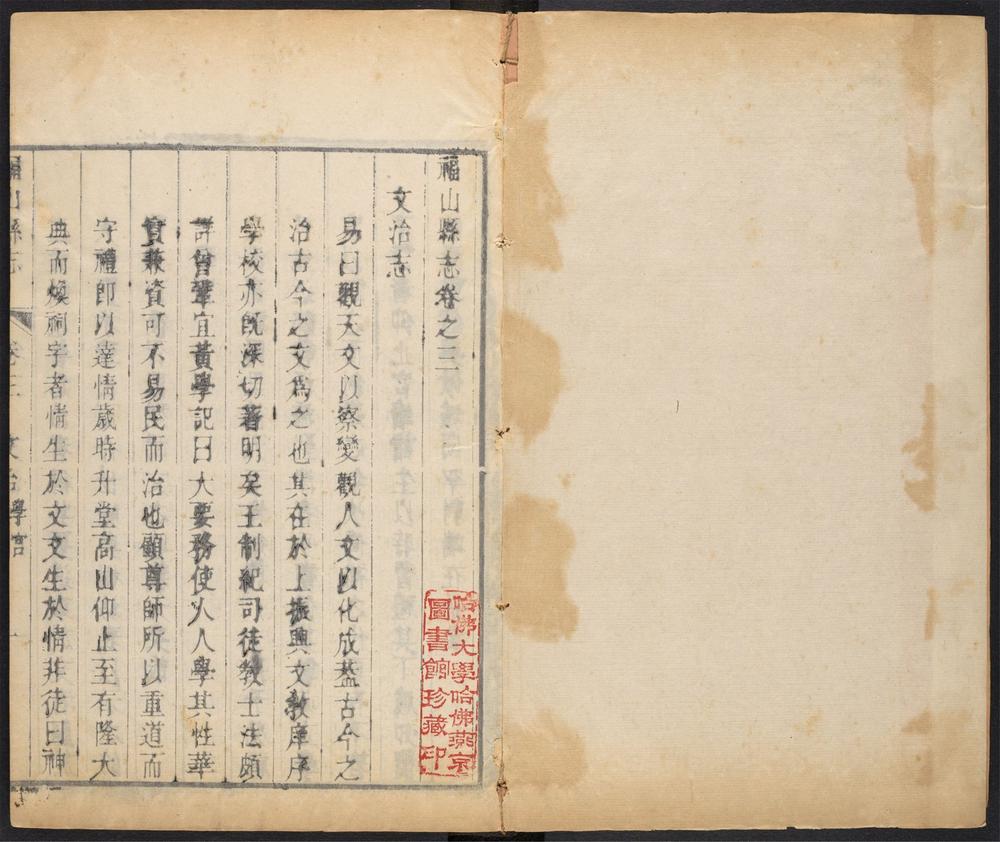 福山縣志卷之三
文治志
易曰觀天文以察變觀人文以化成葢古今之
治古今之文為之也其在於上振興文教庠序
學校亦旣深切著明矣王制紀司徒教士法頗
詳曾鞏宜黃學記曰大要務使人人學其性華
實兼資可不易民而治也顧尊師所以重道而
守禮即以達情歲時升堂高山仰止至有隆大
典而煥祠字者情生於文文生於情非徒曰神
福山縣志
卷三 文治 學宮 一
哈佛大學哈佛燕京
圖書館珍藏印